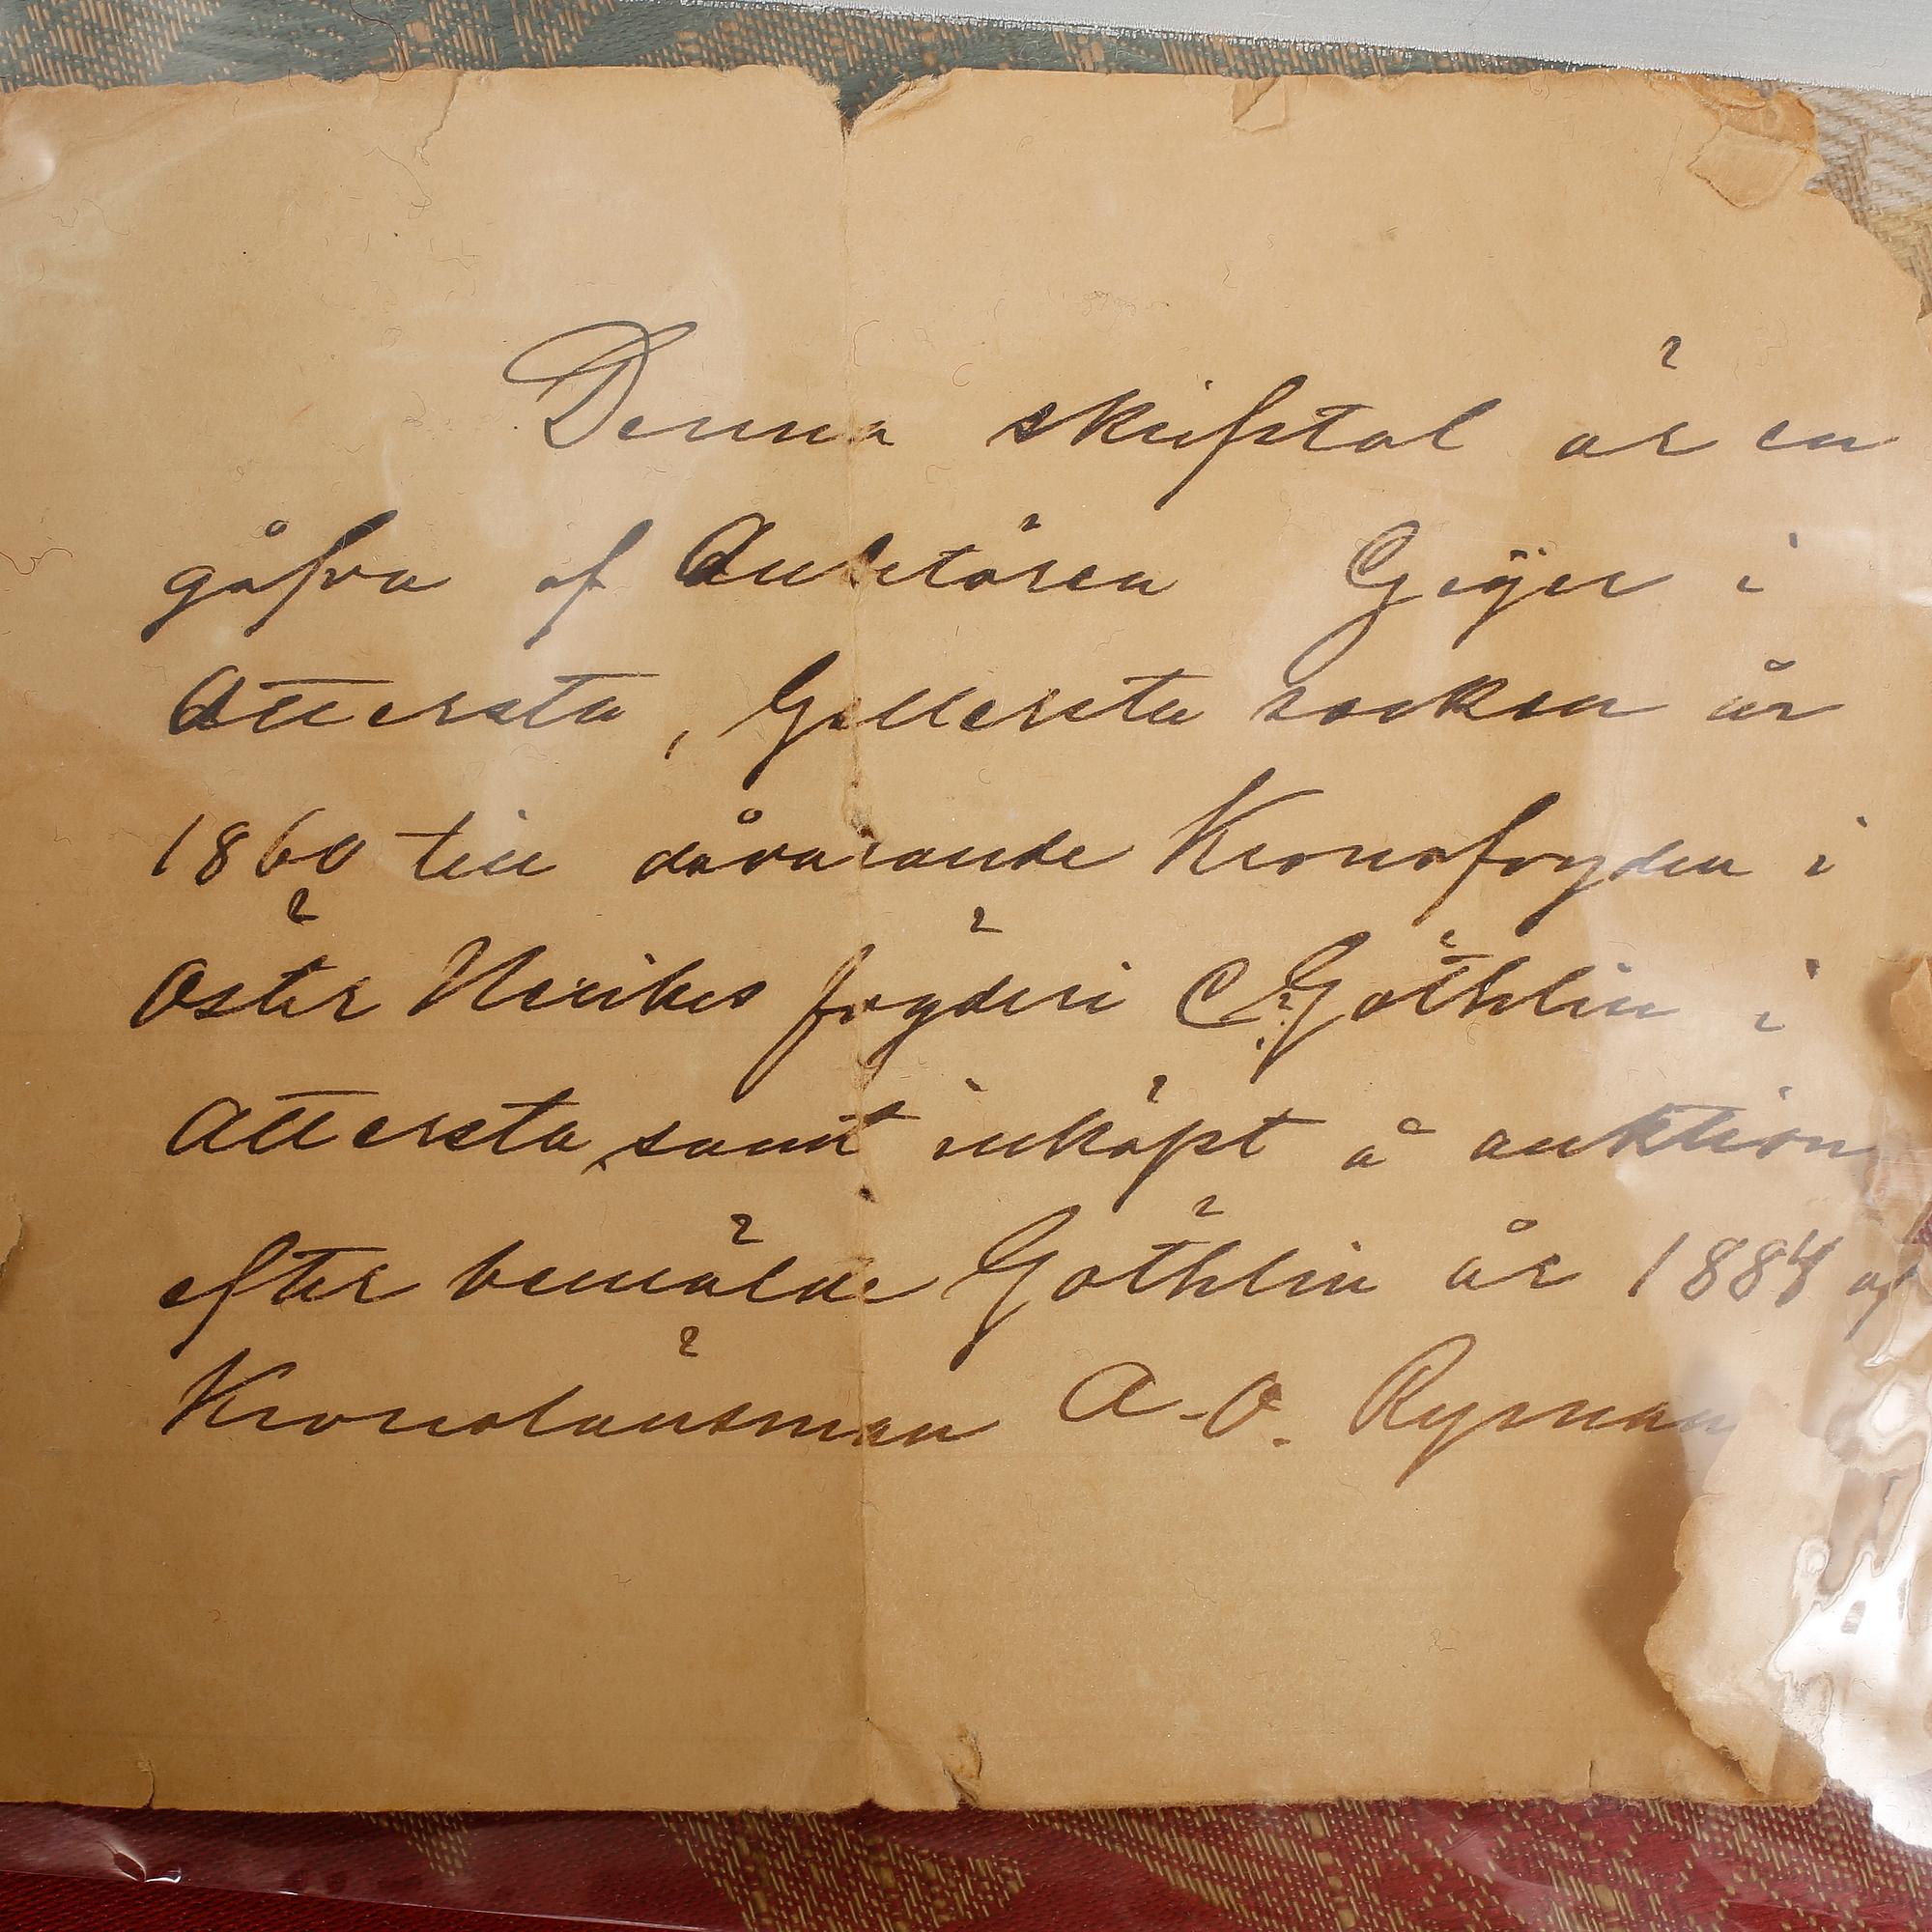 Denna skrifstol är en
gåfva af Auktören Geijer i
Attersta, Gellersta socken år
1860 till dåvarande Kronofogden i
Öster Nerikes fögderi C. G. Göthlin i
Attersta, samt inköpt å auktion
efter bemälde Göthlin år 1884 af
Kronolänsman A. O. Rysman